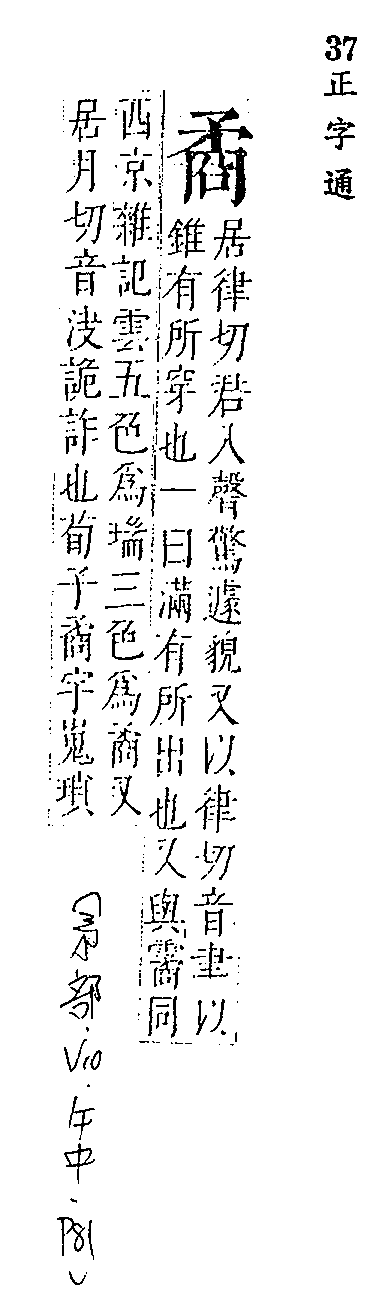 37正字通
矞
居律切君入聲驚遽貌又以律切音聿以
錐有所穿也一曰滿有所出也又與霱同
西京雜記雲五色爲瑞三色爲矞又
居月切音決詭詐也荀子矞宇嵬瑣
(矛部.V10.午中.P81)